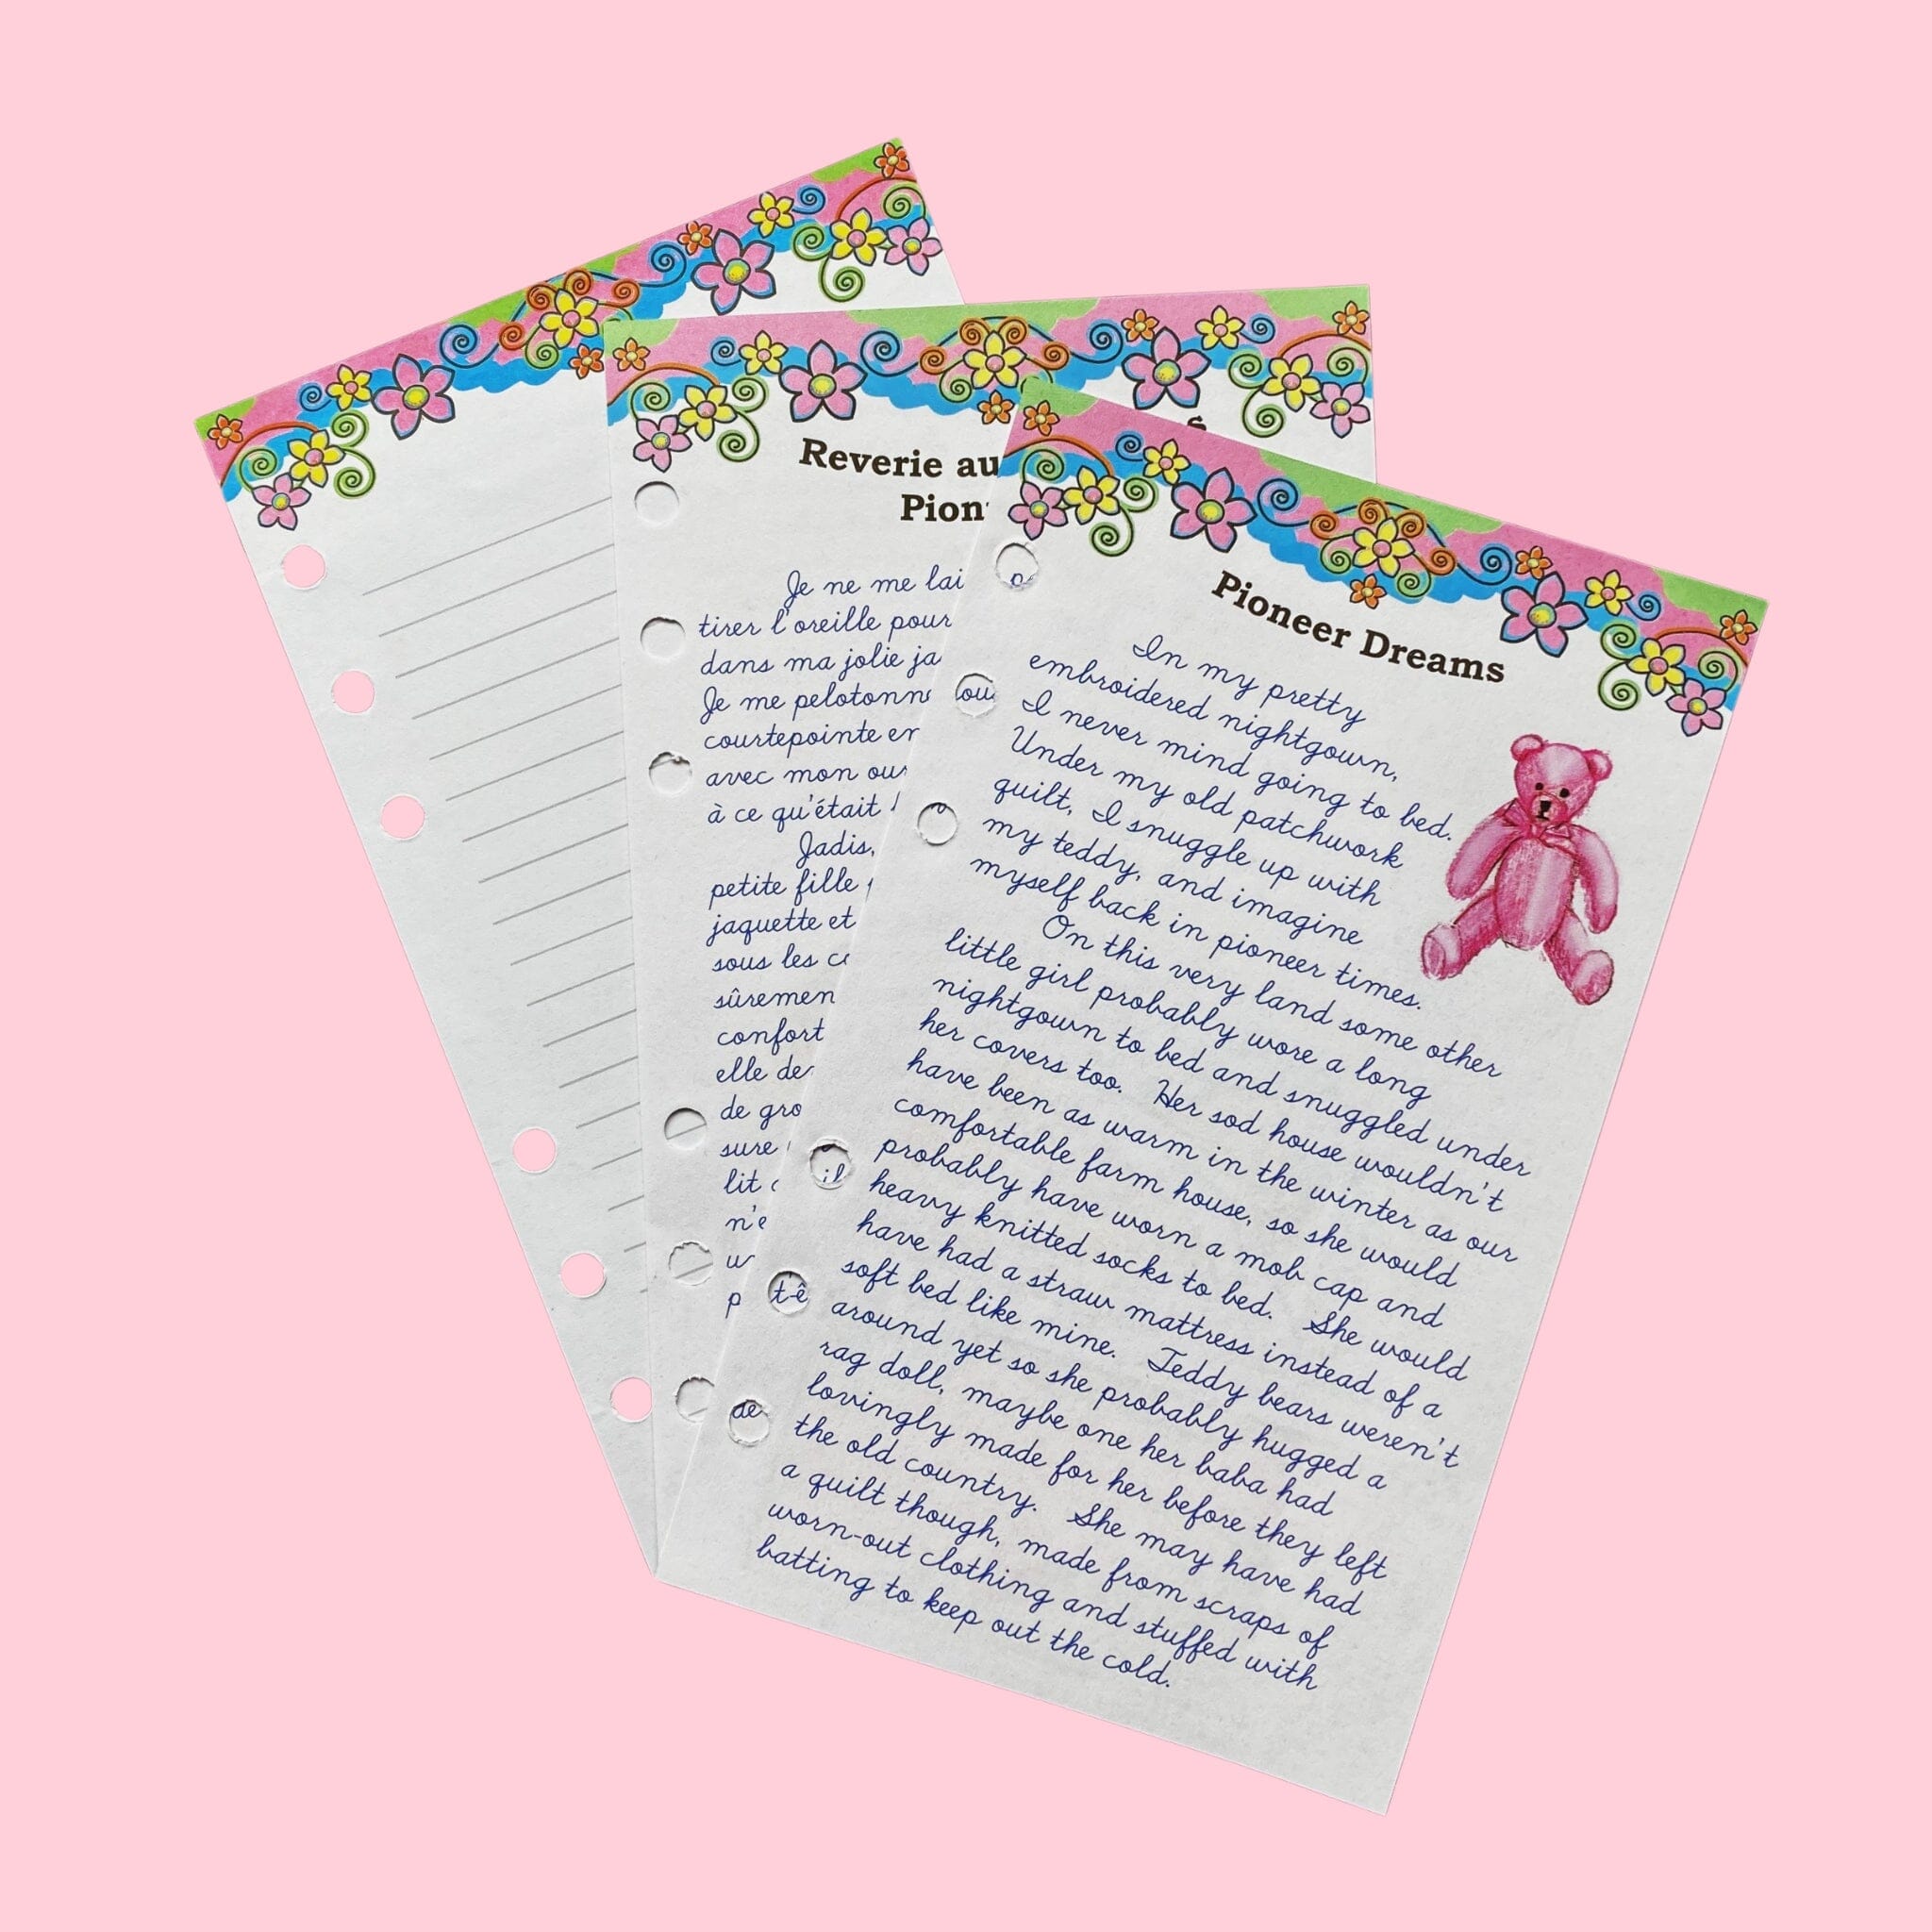 Reverie au
Pion
Je ne me lai
tirer l'oreille pour
dans ma jolie ja
Je me pelotonne
courtepointe en
avec mon our
à ce qu'était
Jadis,
petite fille
jaquette et
sous les co
sûremen
confort
elle de
de gro
sure
lit
n'e
p
Pioneer Dreams
In my pretty
embroidered nightgown,
I never mind going to bed.
Under my old patchwork
quilt, I snuggle up with
my teddy, and imagine
myself back in pioneer times.
On this very land some other
little girl probably wore a long
nightgown to bed and snuggled under
her covers too. Her sod house wouldn't
have been as warm in the winter as our
comfortable farm house, so she would
probably have worn a mob cap and
heavy knitted socks to bed. She would
have had a straw mattress instead of a
soft bed like mine. Teddy bears weren't
around yet so she probably hugged a
rag doll, maybe one her baba had
lovingly made for her before they left
the old country. She may have had
a quilt though, made from scraps of
worn-out clothing and stuffed with
batting to keep out the cold.